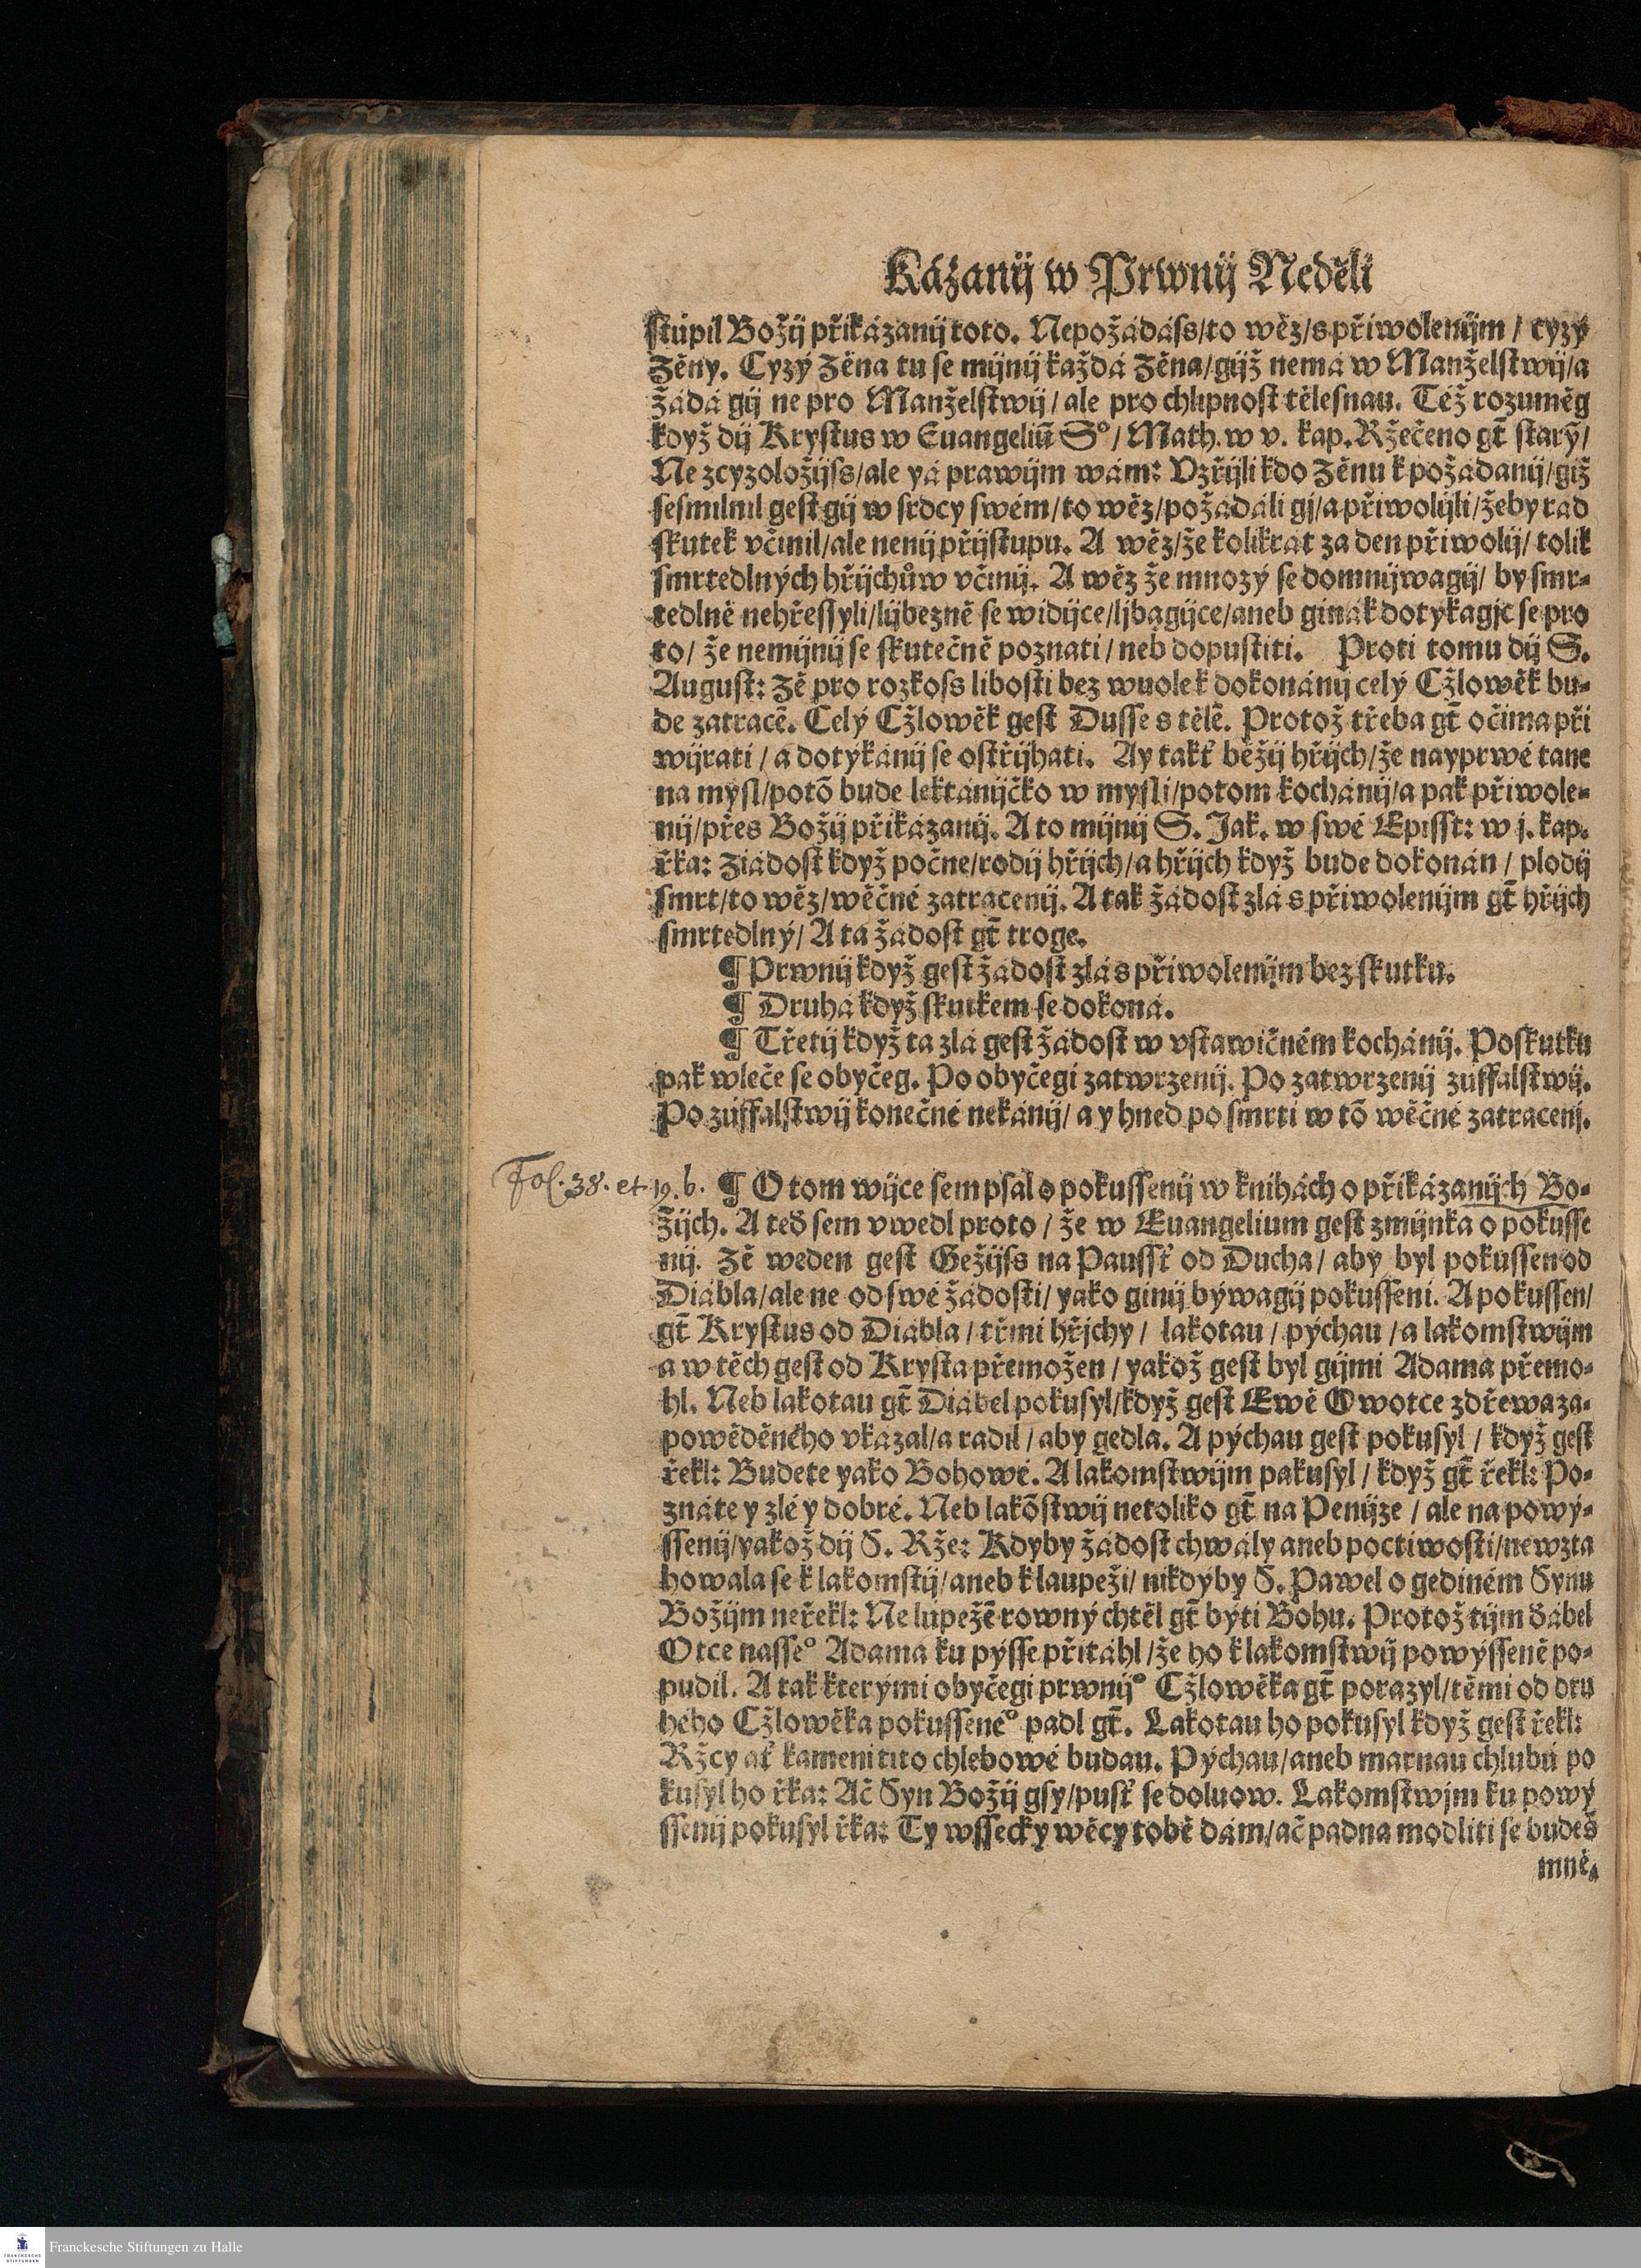 Kázanij w Prwnij Neděli
ſtúpil Božij přikázanij toto. Nepožádáſs/to wěz/s přiwolenijm / cyzý
Zěny. Cyzý Zěna tu ſe mijnij každá Zěna/gijž nemá w Manželſtwij/a
žádá gij ne pro Manželſtwij/ ale pro chlipnoſt tělesnau. Též rozuměg
když dij Kryſtus w Euangeliū S°/ Math. w v. kap. Ržečeno gt̄ ſtarȳ/
Ne zcyzoložijſs/ale yá prawijm wám: Vzřijli kdo Zěnu k požádanij/giž
ſeſmilnil geſt gij w ſrdcy ſwém/to wěz/požádáli gj/a přiwolijli/žeby rád
ſkutek včinil/ale nenij přijſtupu. A wěz/že kolikrát za den přiwolij/ tolik
ſmrtedlných hřijchůw včinij. A wěz že mnozý ſe domnijwagij/ by ſmr⸗
tedlně nehřeſſyli/lijbezně ſe widijce/ljbagijce/aneb ginák dotýkagjc ſe pro
to/ že nemijnij ſe ſkutečně poznati / neb dopuſtiti. Proti tomu dij S.
Auguſt: Zě pro rozkoſs liboſti bez wuole k dokonánij celý Cžlowěk bu⸗
de zatracē. Celý Cžlowěk geſt Duſſe s tělē. Protož třeba gt̄ očima při
wijrati / a dotýkánij ſe oſtřijhati. Ay takť běžij hřijch/že nayprwé tane
na myſl/potō bude lektánijčko w myſli/potom kochánij/a pak přiwole⸗
nij/přes Božij přikázanij. A to mijnij S. Jak. w ſwé Epiſſt: w j. kap.
řka: Ziádoſt když počne/rodij hřijch/a hřijch když bude dokonán / plodij
ſmrt/to wěz/wěčné zatracenij. A tak žádoſt zlá s přiwolenijm gt̄ hřijch
ſmrtedlný/ A tá žádoſt gt̄ troge.
¶ Prwnij když geſt žádoſt zlá s přiwolenijm bez ſkutku.
¶ Druhá když ſkutkem ſe dokoná.
¶ Třetij když ta zlá geſt žádoſt w vſtawičném kochánij. Po ſkutku
pak wleče ſe obyčeg. Po obyčegi zatwrzenij. Po zatwrzenij zúffalſtwij.
Po zúffalſtwij konečné nekánij/ a y hned po ſmrti w tō wěčné zatracenj.
Fol. 38. et 19. b.
¶ O tom wijce ſem pſal o pokuſſenij w knihách o přikázaných Bo⸗
žijch. A teď ſem vwedl proto / že w Euangelium geſt zmijnka o pokuſſe
nij. Zě weden geſt Gežijſs na Pauſſť od Ducha/ aby byl pokuſſen od
Diábla/ale ne od ſwé žádoſti/ yako ginij býwagij pokuſſeni. A pokuſſen/
gt̄ Kryſtus od Diábla / třmi hřjchy / lakotau / pýchau / a lakomſtwijm
a w těch geſt od Kryſta přemožen / yakož geſt byl gijmi Adama přemo⸗
hl. Neb lakotau gt̄ Diábel pokuſyl/když geſt Ewě Owotce z dřewa za⸗
powěděného vkázal/a radil / aby gedla. A pýchau geſt pokuſyl / když geſt
řekl: Budete yako Bohowé. A lakomſtwijm pakuſyl / když gt̄ řekl: Po⸗
znáte y zlé y dobré. Neb lakōſtwij netoliko gt̄ na Penijze / ale na powý⸗
ſſenij/yakož dij S. Rže: Kdyby žádoſt chwály aneb poctiwoſti/newzta
howala ſe k lakomſtij/aneb k laupeži/ nikdyby S. Pawel o gediném Synu
Božijm neřekl: Ne lúpežē rowný chtěl gt̄ býti Bohu. Protož tijm ďábel
Otce naſſe° Adama ku pýſſe přitáhl /že ho k lakomſtwij powýſſené po⸗
pudil. A tak kterými obyčegi prwnij° Cžlowěka gt̄ porazyl/těmi od dru
hého Cžlowěka pokuſſené° padl gt̄. Lakotau ho pokuſyl když geſt řekl:
Ržcy ať kameni tito chlebowé budau. Pýchau/aneb marnau chlubú po
kuſyl ho řka: Ač Syn Božij gſy/puſť ſe doluow. Lakomſtwjm ku powý
ſſenij pokuſyl řka: Ty wſſecky wěcy tobě dám/ač padna modliti ſe budeš
mně.
Franckesche Stiftungen zu Halle